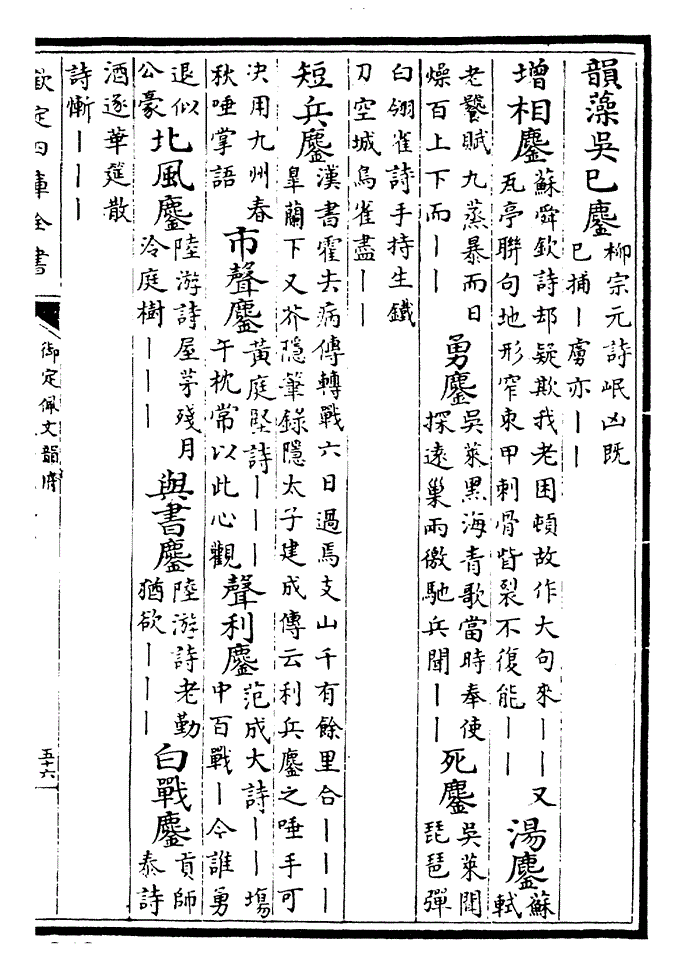 韻藻吳巳鏖
柳宗元詩岷凶既
巳捕丨虜亦丨丨
增相鏖
蘇舜欽詩却疑欺我老困頓故作大句來丨丨又
瓦亭聯句地形窄束甲刺骨皆裂不復能丨丨
湯鏖
蘇
軾
老饕賦九蒸暴而日
燥百上下而丨丨
勇鏖
吳萊黑海青歌當時奉使
探遠巢兩徼馳兵聞丨丨
死鏖
吳萊聞
琵琶彈
白翎雀詩手持生鐵
刀空城烏雀盡丨丨
短兵鏖
漢書霍去病傳轉戰六日過焉支山千有餘里合丨丨丨
臯蘭下又芥隱筆錄隱太子建成傳云利兵鏖之唾手可
决用九州春
秋唾掌語
市聲鏖
黃庭堅詩丨丨丨
午枕常以此心觀
聲利鏖
范成大詩丨丨塲
中百戰丨今誰勇
退似
公豪
北風鏖
陸游詩屋茅殘月
冷庭樹丨丨丨
與書鏖
陸游詩老勤
猶欲丨丨丨
白戰鏖
貢師
泰詩
酒逐華筵散
詩慚丨丨丨
欽定四庫全書
御定佩文韻府
五十六